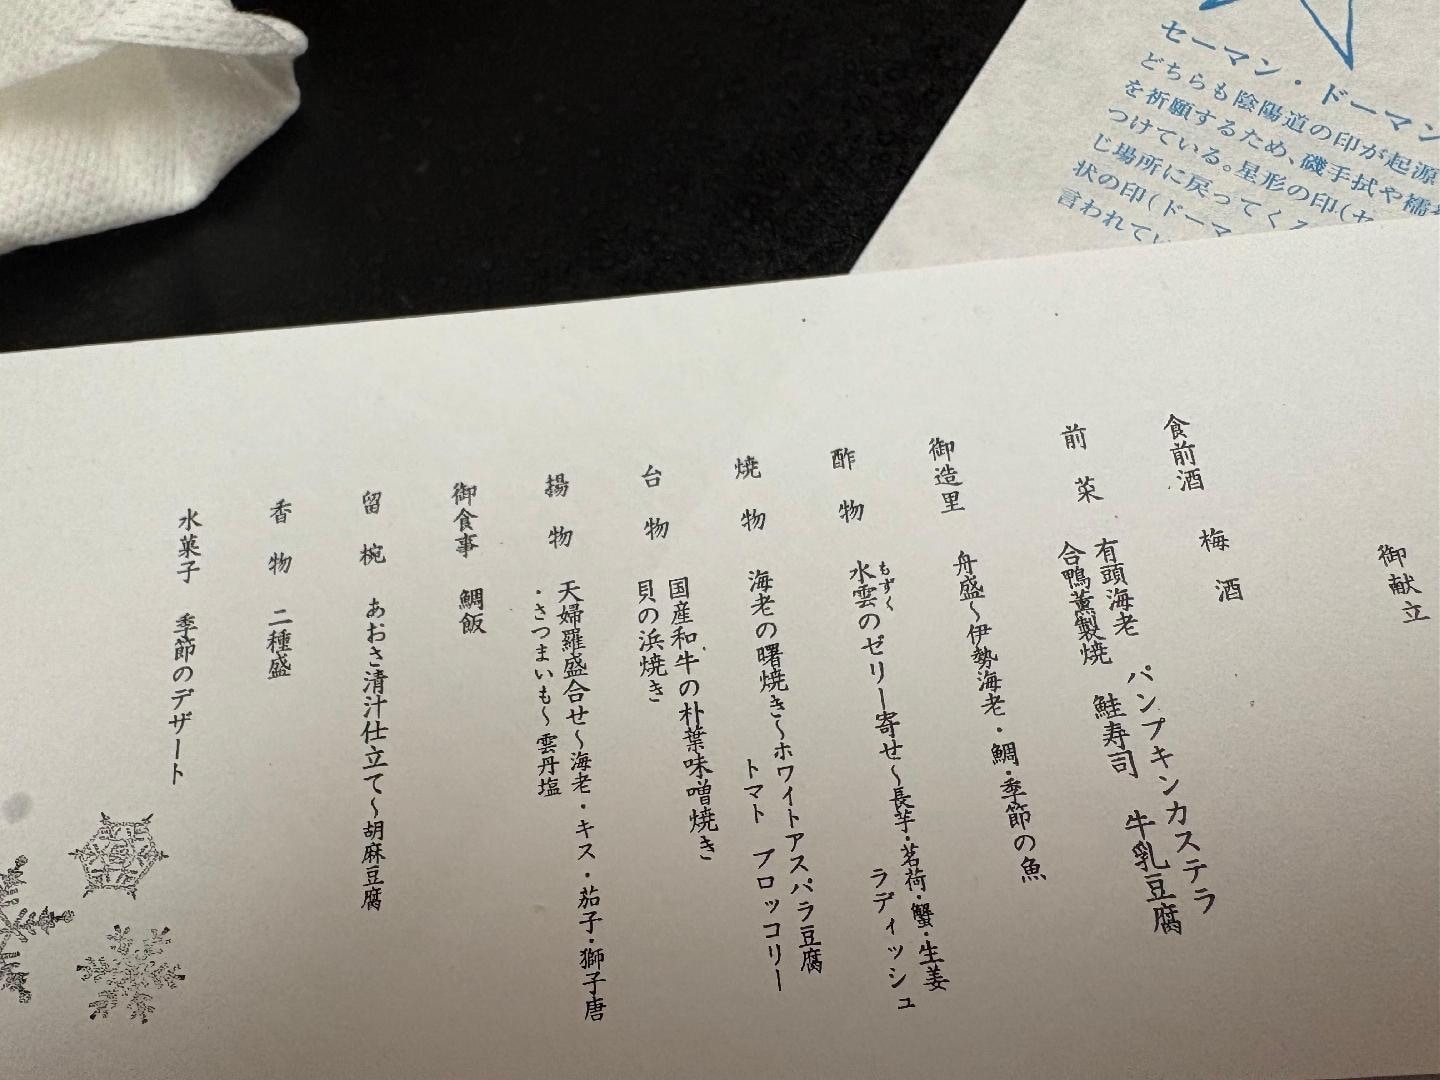 セーマン・ドーマン
どちらも陰陽道の印が起源
を祈願するため、磯手拭や襦
つけている。星形の印(セ
じ場所に戻ってくる
状の印(ドーマ
言われてい
御献立
食前酒 梅酒
前菜 有頭海老 パンプキンカステラ
合鴨薫製焼 鮭寿司 牛乳豆腐
御造里 舟盛〜伊勢海老・鯛・季節の魚
酢物 水雲のゼリー寄せ〜長芋・茗荷・蟹・生姜
もずく
ラディッシュ
焼物 海老の曙焼き〜ホワイトアスパラ豆腐
トマト ブロッコリー
台物 国産和牛の朴葉味噌焼き
貝の浜焼き
揚物 天婦羅盛合せ〜海老・キス・茄子・獅子唐
・さつまいも〜雲丹塩
御食事 鯛飯
留椀 あおさ清汁仕立て〜胡麻豆腐
香物 二種盛
水菓子 季節のデザート